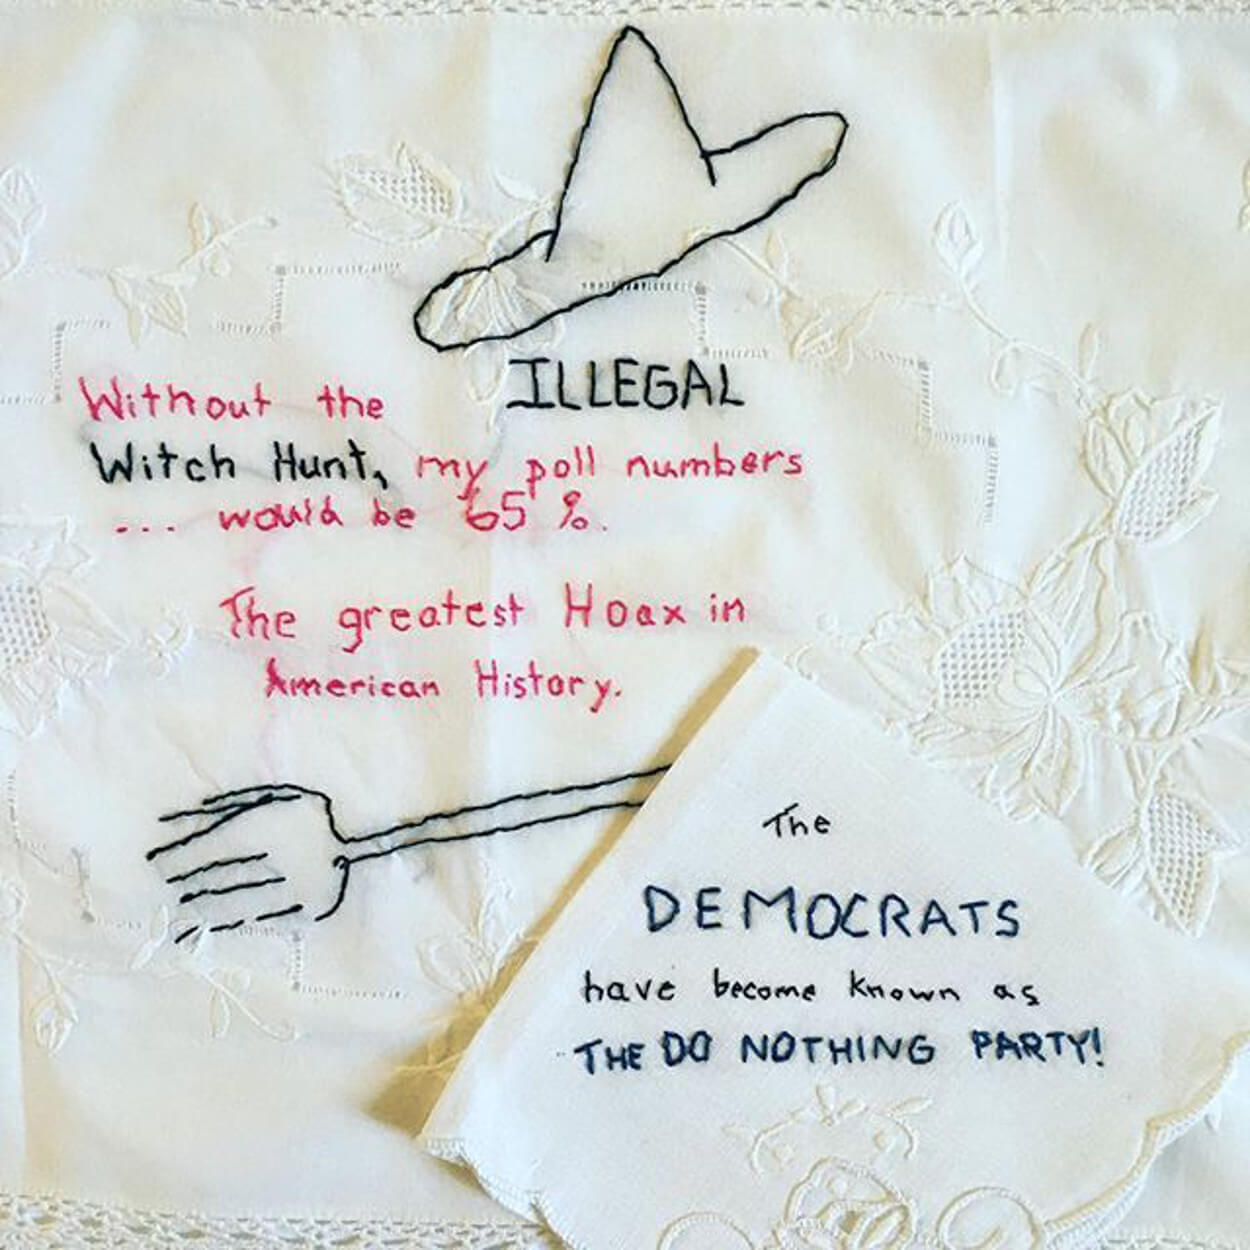 ILLEGAL
Without the
Witch Hunt, my poll numbers
... would be 65 %.
The greatest Hoax in
American History.
The
DEMOCRATS
have become known as
THE DO NOTHING PARTY!